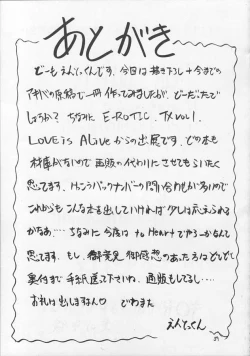 あとがき
どーもえんどっくんです。今日は描き下し+今までの
アキバの原稿で一冊作ってみましたが、どーだったで
しょうか? ちなみに E-ROTIC. TX VOL1.
LOVE iS ALiVeからの出展です。どの本も
在庫がないので 再販の代わりにさせてもらいたく
思ってます。バックナンバーの問い合わせが多いので
これからも こんな本を出していければ 少しは応えられる
かなあ… ちなみに今度は to Heartでやろーかなんて
思ってます。もし、御意見 御感想のあった方はどしどし
裏付まで 手紙送って下さいね。通販もしてるし…
お礼は出しますんで でわまた
えんどっくん